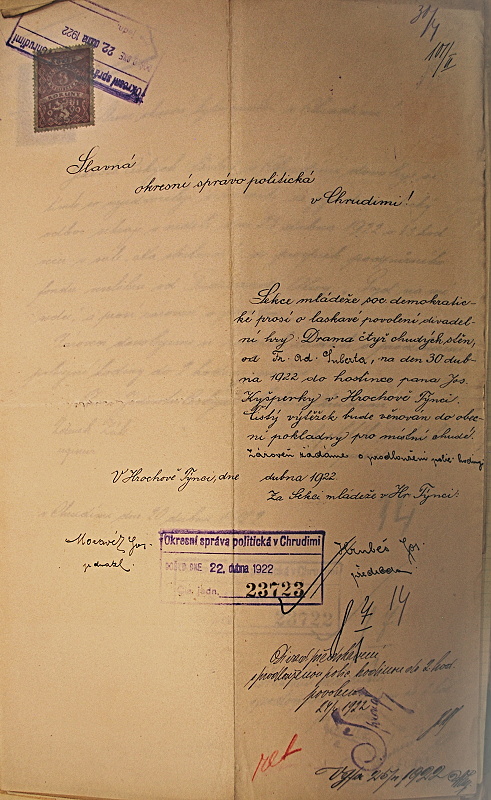 31/4
101/II
Okresní správa
v Chrudimi
DNE 22. dubna 1922
Slavná
okresní správo politická
v Chrudimi!
Sekce mládeže soc. demokratic-
ké prosí o laskavé povolení divadel-
ní hry: Drama čtyř chudých stěn,
od Fr. Ad. Šuberta, na den 30 dub-
na 1922 do hostince pana Jos.
Kyšperky v Hrochově Týnci.
Čistý výtěžek bude věnován do obec-
ní pokladny pro místní chudé.
Zároveň žádáme o prodloužení polic. hodiny
V Hrochově Týnci, dne dubna 1922
Za Sekci mládeže v Hr. Týnci:
Moravec Jos.
jednatel.
Hrubeš Jos.
předseda
Okresní správa politická v Chrudimi
DOŠLO DNE 22. dubna 1922
Čís. jedn. 23723
14
Divad představení
s prodloužením polic. hodiny do 2 hod
povoleno
24/4 1922
ret
Vypr 25/IV 1922